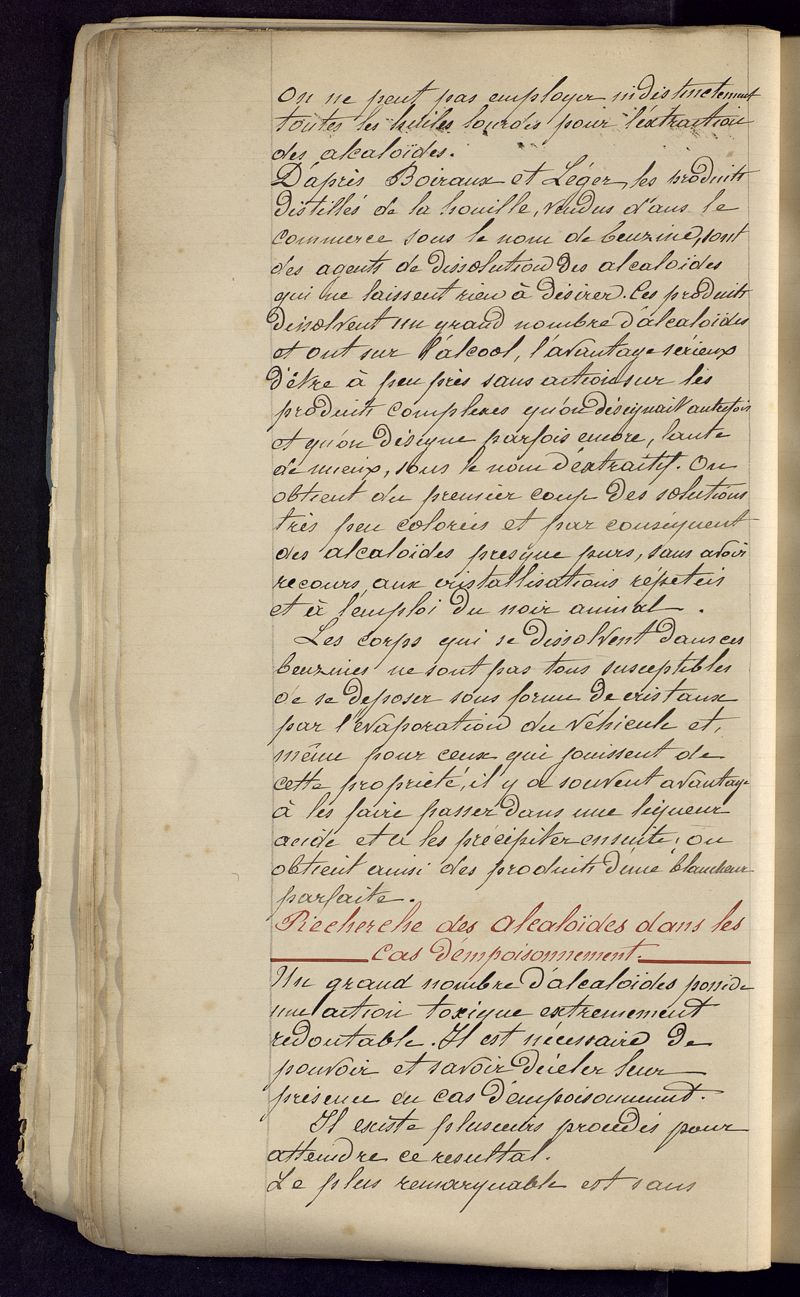 On ne peut pas employer indistinctement
toutes les huiles lourdes pour l'extraction
des alcaloïdes.
D'après Boiraux et Léger, les produits
distillés de la houille, vendus dans le
commerce sous le nom de benzine, sont
des agents de dissolution des alcaloïdes
qui ne laissent rien à désirer. Ces produits
dissolvent un grand nombre d'alcaloïdes
et ont sur l'alcool, l'avantage sérieux
d'être à peu près sans action sur les
produits complexes qu'on désignait autrefois
et qu'on désigne parfois encore, faute
de mieux, sous le nom d'extractif. On
obtient du premier coup des solutions
très peu colorées et par conséquent
des alcaloïdes presque purs, sans avoir
recours aux cristallisations répeteis
et à l'emploi du noir animal.
Les corps qui se dissolvent dans ces
benzines ne sont pas tous susceptibles
de se deposer sous forme de cristaux
par l'évaporation du véhicule et,
même pour ceux qui jouissent de
cette propriété, il y a souvent avantage
à les faire passer dans une liqueur
acide et à les précipiter ensuite; on
obtient ainsi des produits d'une blancheur
parfaite.
Recherche des alcaloïdes dans les
cas d'empoisonnement.
Un grand nombre d'alcaloïdes possède
une action toxique extremement
redoutable. Il est nécessaire de
pouvoir et savoir déceler leur
présence en cas d'empoisonnement.
Il existe plusieurs procédés pour
atteindre ce resultat.
Le plus remarquable est sans